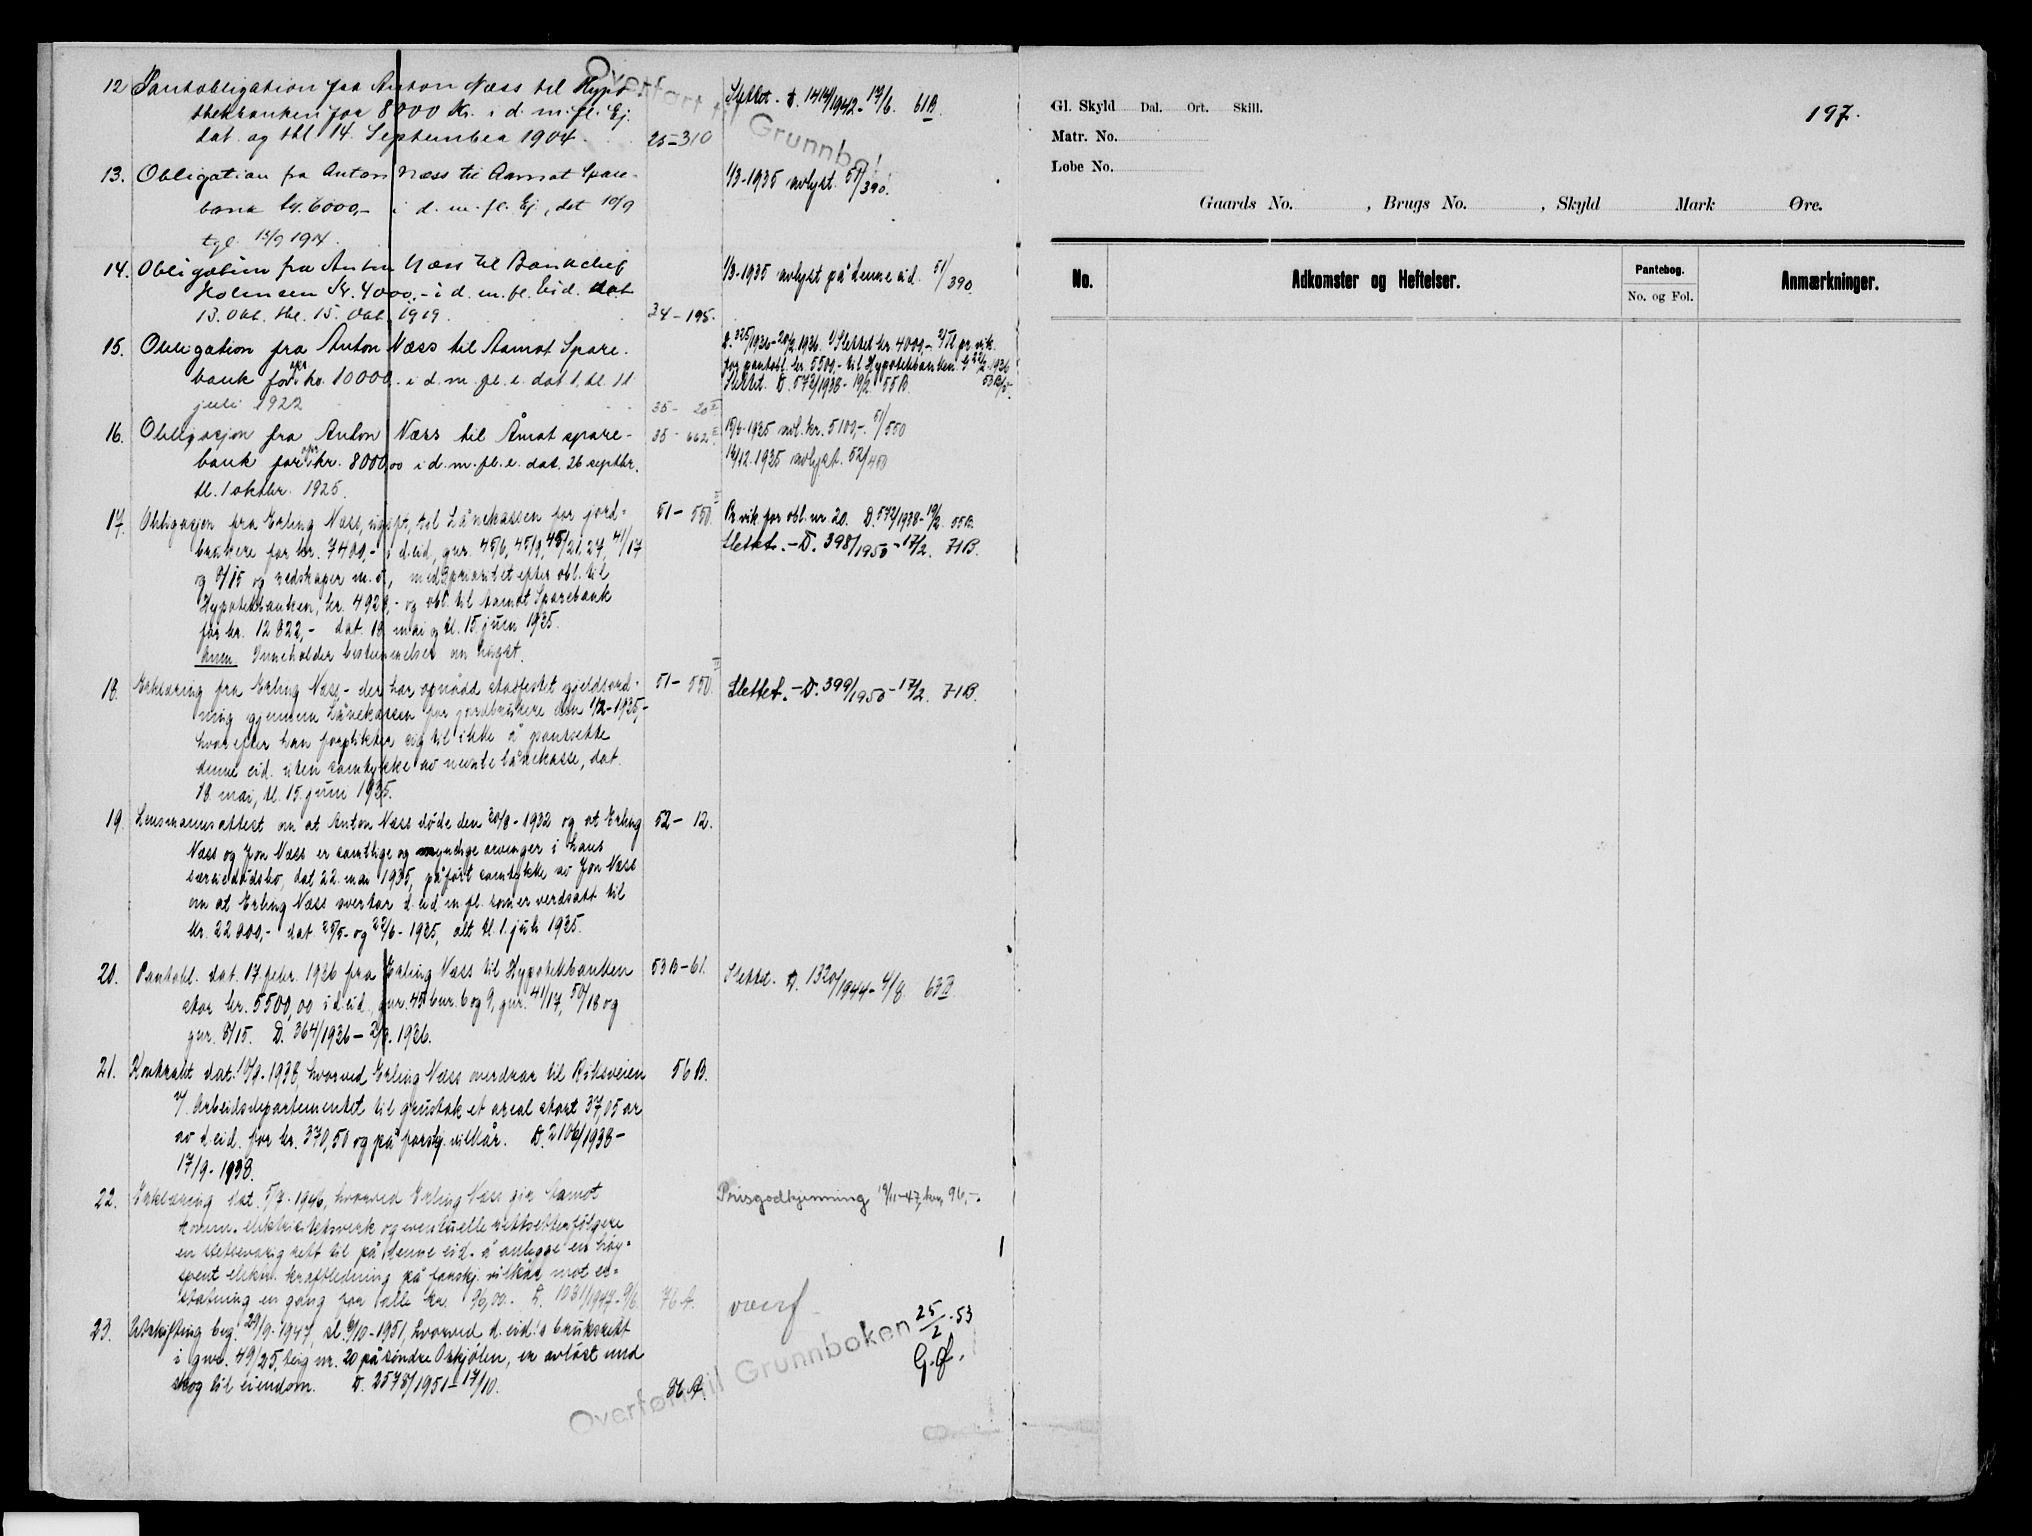 12 Pantobligation fra Anton Næss til Hypo
thekbanken for 8000 Kr. i d. m. fl. Ej.
dat. og thl 14. September 1904. 25-310
Slettet. D. 1414/1942 - 17/6. 61B.
Overført til Grunnbo
13. Obligation fra Anton Næss til Aamot Spare-
bank kr. 6000,- i d. m. fl. Ej., dat 10/9
tgl. 15/9 1914.
1/3-1935 avlyst. 51/390.
14. Obligation fra Anton Næss til Bankchef
Holmsen Kr. 4000.- i d. m. fl. Eid. dat
13. Okt. thl. 15. Okt. 1919. 34-195.
1/3-1935 avlyst på denne eid. 51/390.
15. Obligation fra Anton Næss til Aamot Spare-
bank for opr. kr. 10000. i d. m. fl. e. dat 1. tl. 11
juli 1922 35- 20
D. 325/1936 - 20/2 1936. Slettet kr. 4000,- pr. vik.
for pantobl. kr. 5500,- til Hypotekbanken
Slettet. D. 572/1938 - 19/2. 55B.
16. Obligasjon fra Anton Næss til Åmot spare-
bank for opr. kr. 8000,00 i d. m. fl. e. dat. 26 septbr.
tl. 1 oktbr. 1925.
35-662
19/6-1935 nedl. kr. 5100,-. 51/550
14/12.1935 avlyst. 52/450
17. Obligasjon fra Erling Næss, ugift, til Lånekassen for jord-
brukere for kr. 7400,- i d. eid, gnr. 45/6, 45/9, 45/21, 27, 41/17
og 8/15 og redskaper m. v., med prioritet efter obl. til
Hypotekbanken, kr. 4920,- og obl. til Aamot Sparebank
for kr. 12822,- dat. 18 mai og tl. 15. juni 1935.
Anm. Inneholder bestemmelser om hugst.
51-550.
Pr. vik for obl. nr. 20. D. 572/1938 - 19/2. 55B.
Slettet. - D. 398/1950 - 17/2. 71B.
18. Erklæring fra Erling Næss - der har opnådd stadfestet gjeldsord-
ning gjennem Lånekassen for jordbrukere den 1/2-1935,-
hvorefter han forplikter sig til ikke å pantsette
denne eid. uten samtykke av nevnte lånekasse, dat.
18. mai, tl. 15. juni 1935.
51-550.
Slettet. - D. 399/1950 - 17/2. 71B.
19. Lensmannsattest om at Anton Næss døde den 20/8-1932 og at Erling
Næss og Jon Næss er samtlige og myndige arvinger i hans
særskiedødsbo, dat. 22. mai 1935, påført samtykke av Jon Næss
om at Erling Næss overtar d. eid m fl. som er verdsatt til
kr. 22000,- dat. 25/5- og 22/6-1935, alt tl. 1. juli 1935.
52- 12.
20. Pantobl. dat. 17. febr. 1936 fra Erling Næss til Hypotekbanken
stor kr. 5500,00 i d. eid., gnr. 45 bnr. 6 og 9, gnr. 41/17, 50/18 og
gnr. 8/15. D. 364/1936 - 2/3. 1936.
53B-61.
Slettet. D. 1320/1944 - 4/8. 63B.
21. Kontrakt dat. 10/9-1938, hvorved Erling Næss overdrar til Riksveien
v/ Arbeidsdepartementet til grustak et areal stort 37,05 ar
av d. eid. for kr. 370,50 og på forskj. vilkår. D. 2106/1938 -
17/9-1938.
56B.
22. Erklæring dat. 5/7-1946, hvorved Erling Næss gir Aamot
komm. elektrisitetsverk og eventuelle rettsetterfølgere
en stetsevarig rett til på denne eid. å anlegge en høy-
spent elektr. kraftledning på forskj. vilkår mot er-
statning en gang for alle kr. 96,00.- D. 1031/1947-9/6. 76A.
Prisgodkjenning 19/11-47, kr. 96,-.
23. Utskifting beg. 29/9-1947, sl. 6/10-1951, hvorved d. eid.'s bruksrett
i gnr. 49/25, teig nr. 20 på søndre Oskjølen, er avløst med
skog til eiendom. D. 2578/1951 - 17/10.
86A.
Overført til Grunnboken 25/2-53
G. f.
197.
Gl. Skyld Dal. Ort. Skill.
Matr. No.
Løbe No.
Gaards No. , Brugs No. , Skyld Mark Øre.
No. Adkomster og Heftelser. Pantebog. No. og Fol. Anmærkninger.